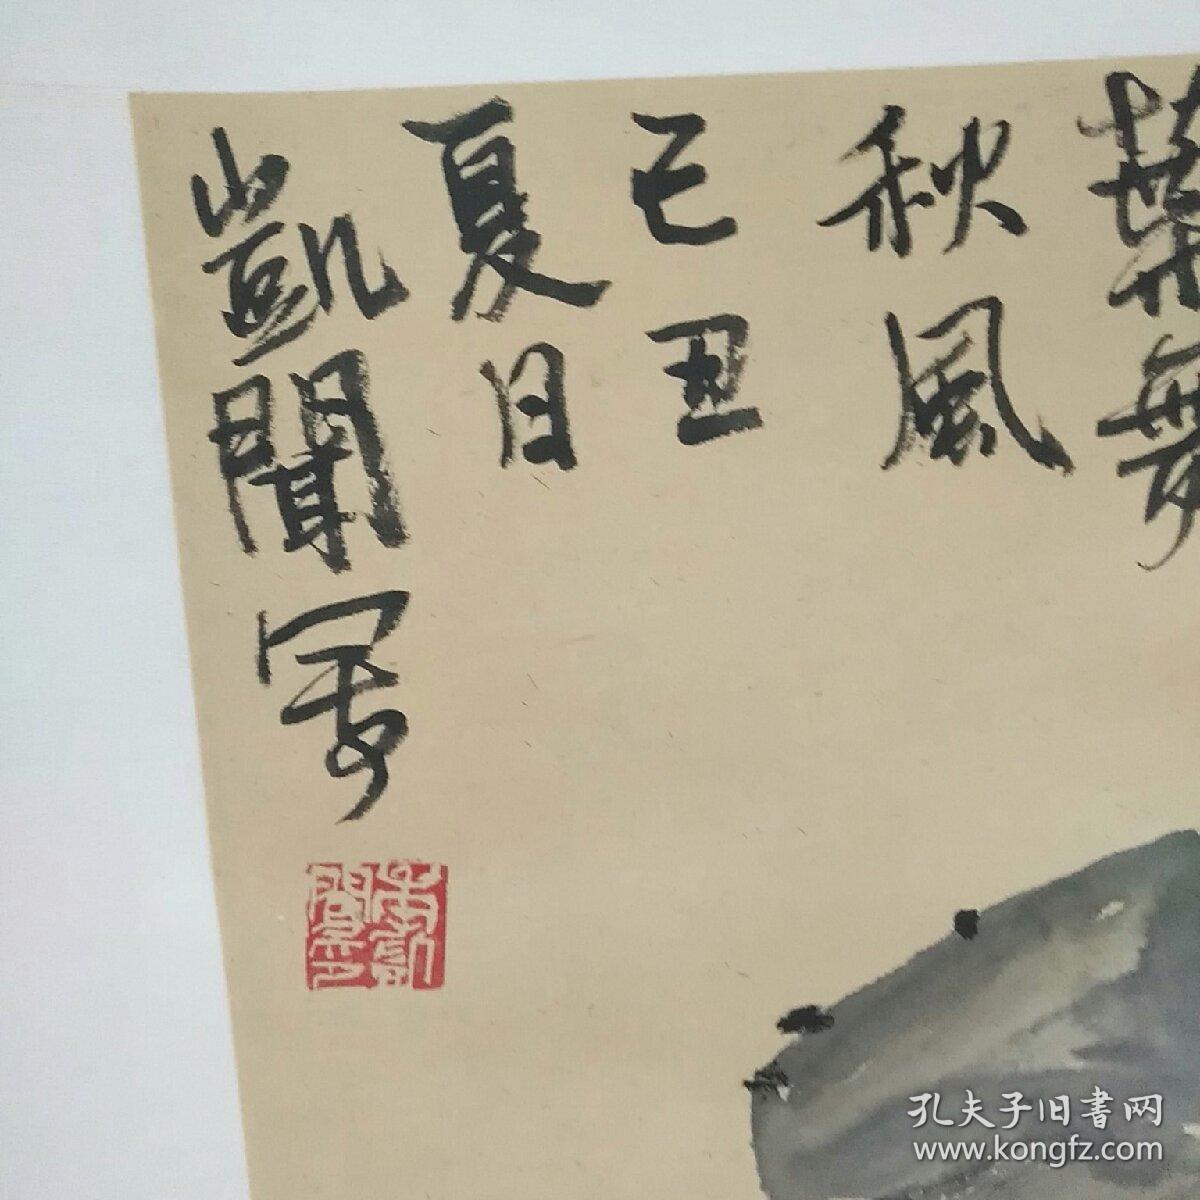 葉舞
秋風
己丑
夏日
凱聞寫
孔夫子旧書网
www.kongfz.com